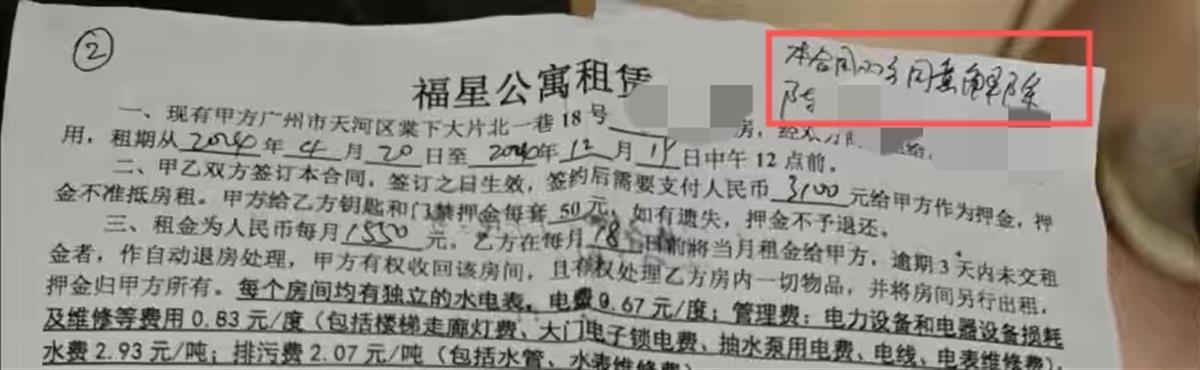 ②
本合同双方同意解除
福星公寓租赁
一、现有甲方广州市天河区棠下大片北一巷18号 房,经双方
用,租期从2024年4月20日至2024年12月19日中午12点前。
二、甲乙双方签订本合同,签订之日生效,签约后需要支付人民币3100元给甲方作为押金,押
金不准抵房租。甲方给乙方钥匙和门禁押金每套50元,如有遗失,押金不予退还。
三、租金为人民币每月1550元。乙方在每月18日前将当月租金给甲方,逾期3天内未交租
金者,作自动退房处理,甲方有权收回该房间,且有权处理乙方房内一切物品,并将房间另行出租,
押金归甲方所有。每个房间均有独立的水电表。电费0.67元/度;管理费:电力设备和电器设备损耗
及维修等费用0.83元/度(包括楼梯走廊灯费、大门电子锁电费、抽水泵用电费、电线、电表维修费)
水费2.93元/吨;排污费2.07元/吨(包括水管、水表维修费)